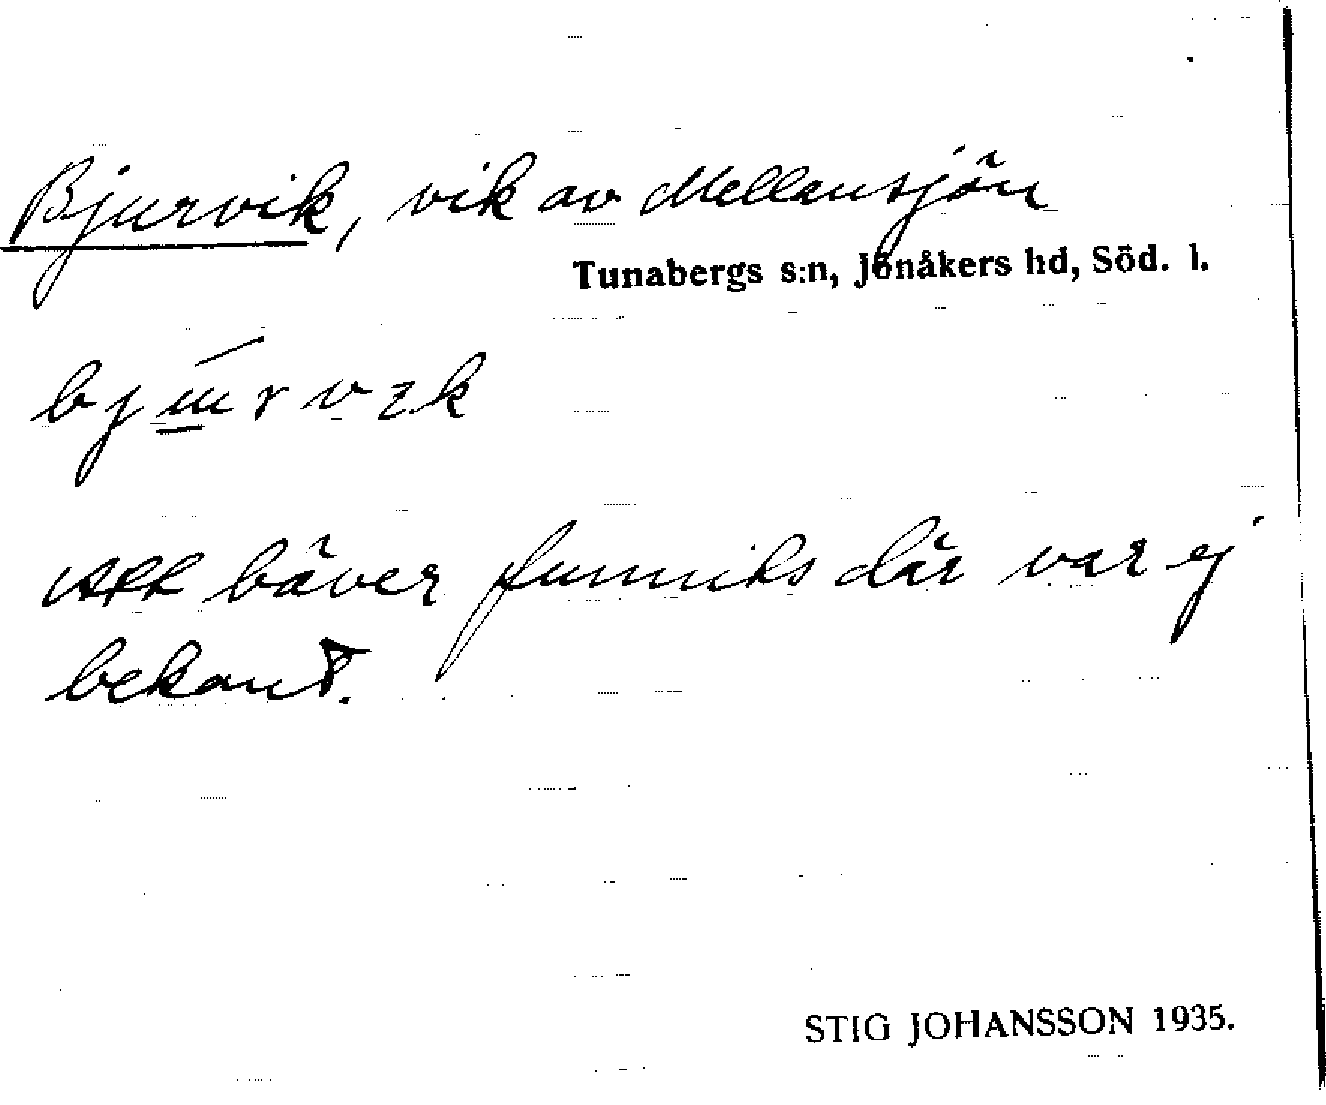 Bjurvik, vik av Mellansjön
Tunabergs s:n, Jönåkers hd, Söd. l.
Att bäver funnits där var ej
bekant.
STIG JOHANSSON 1935.